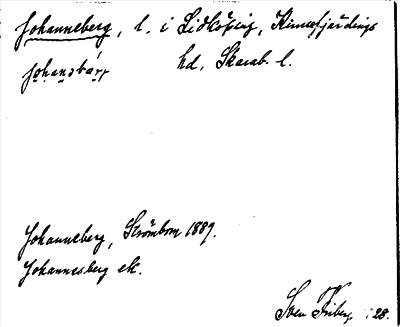 Johanneberg, l. i Lidköping, Kinnefjärdings
johansbärj hd, Skarab. l.
Johanneberg, Strömbom 1889.
Johannesberg ek.
Sven Friberg. 28.